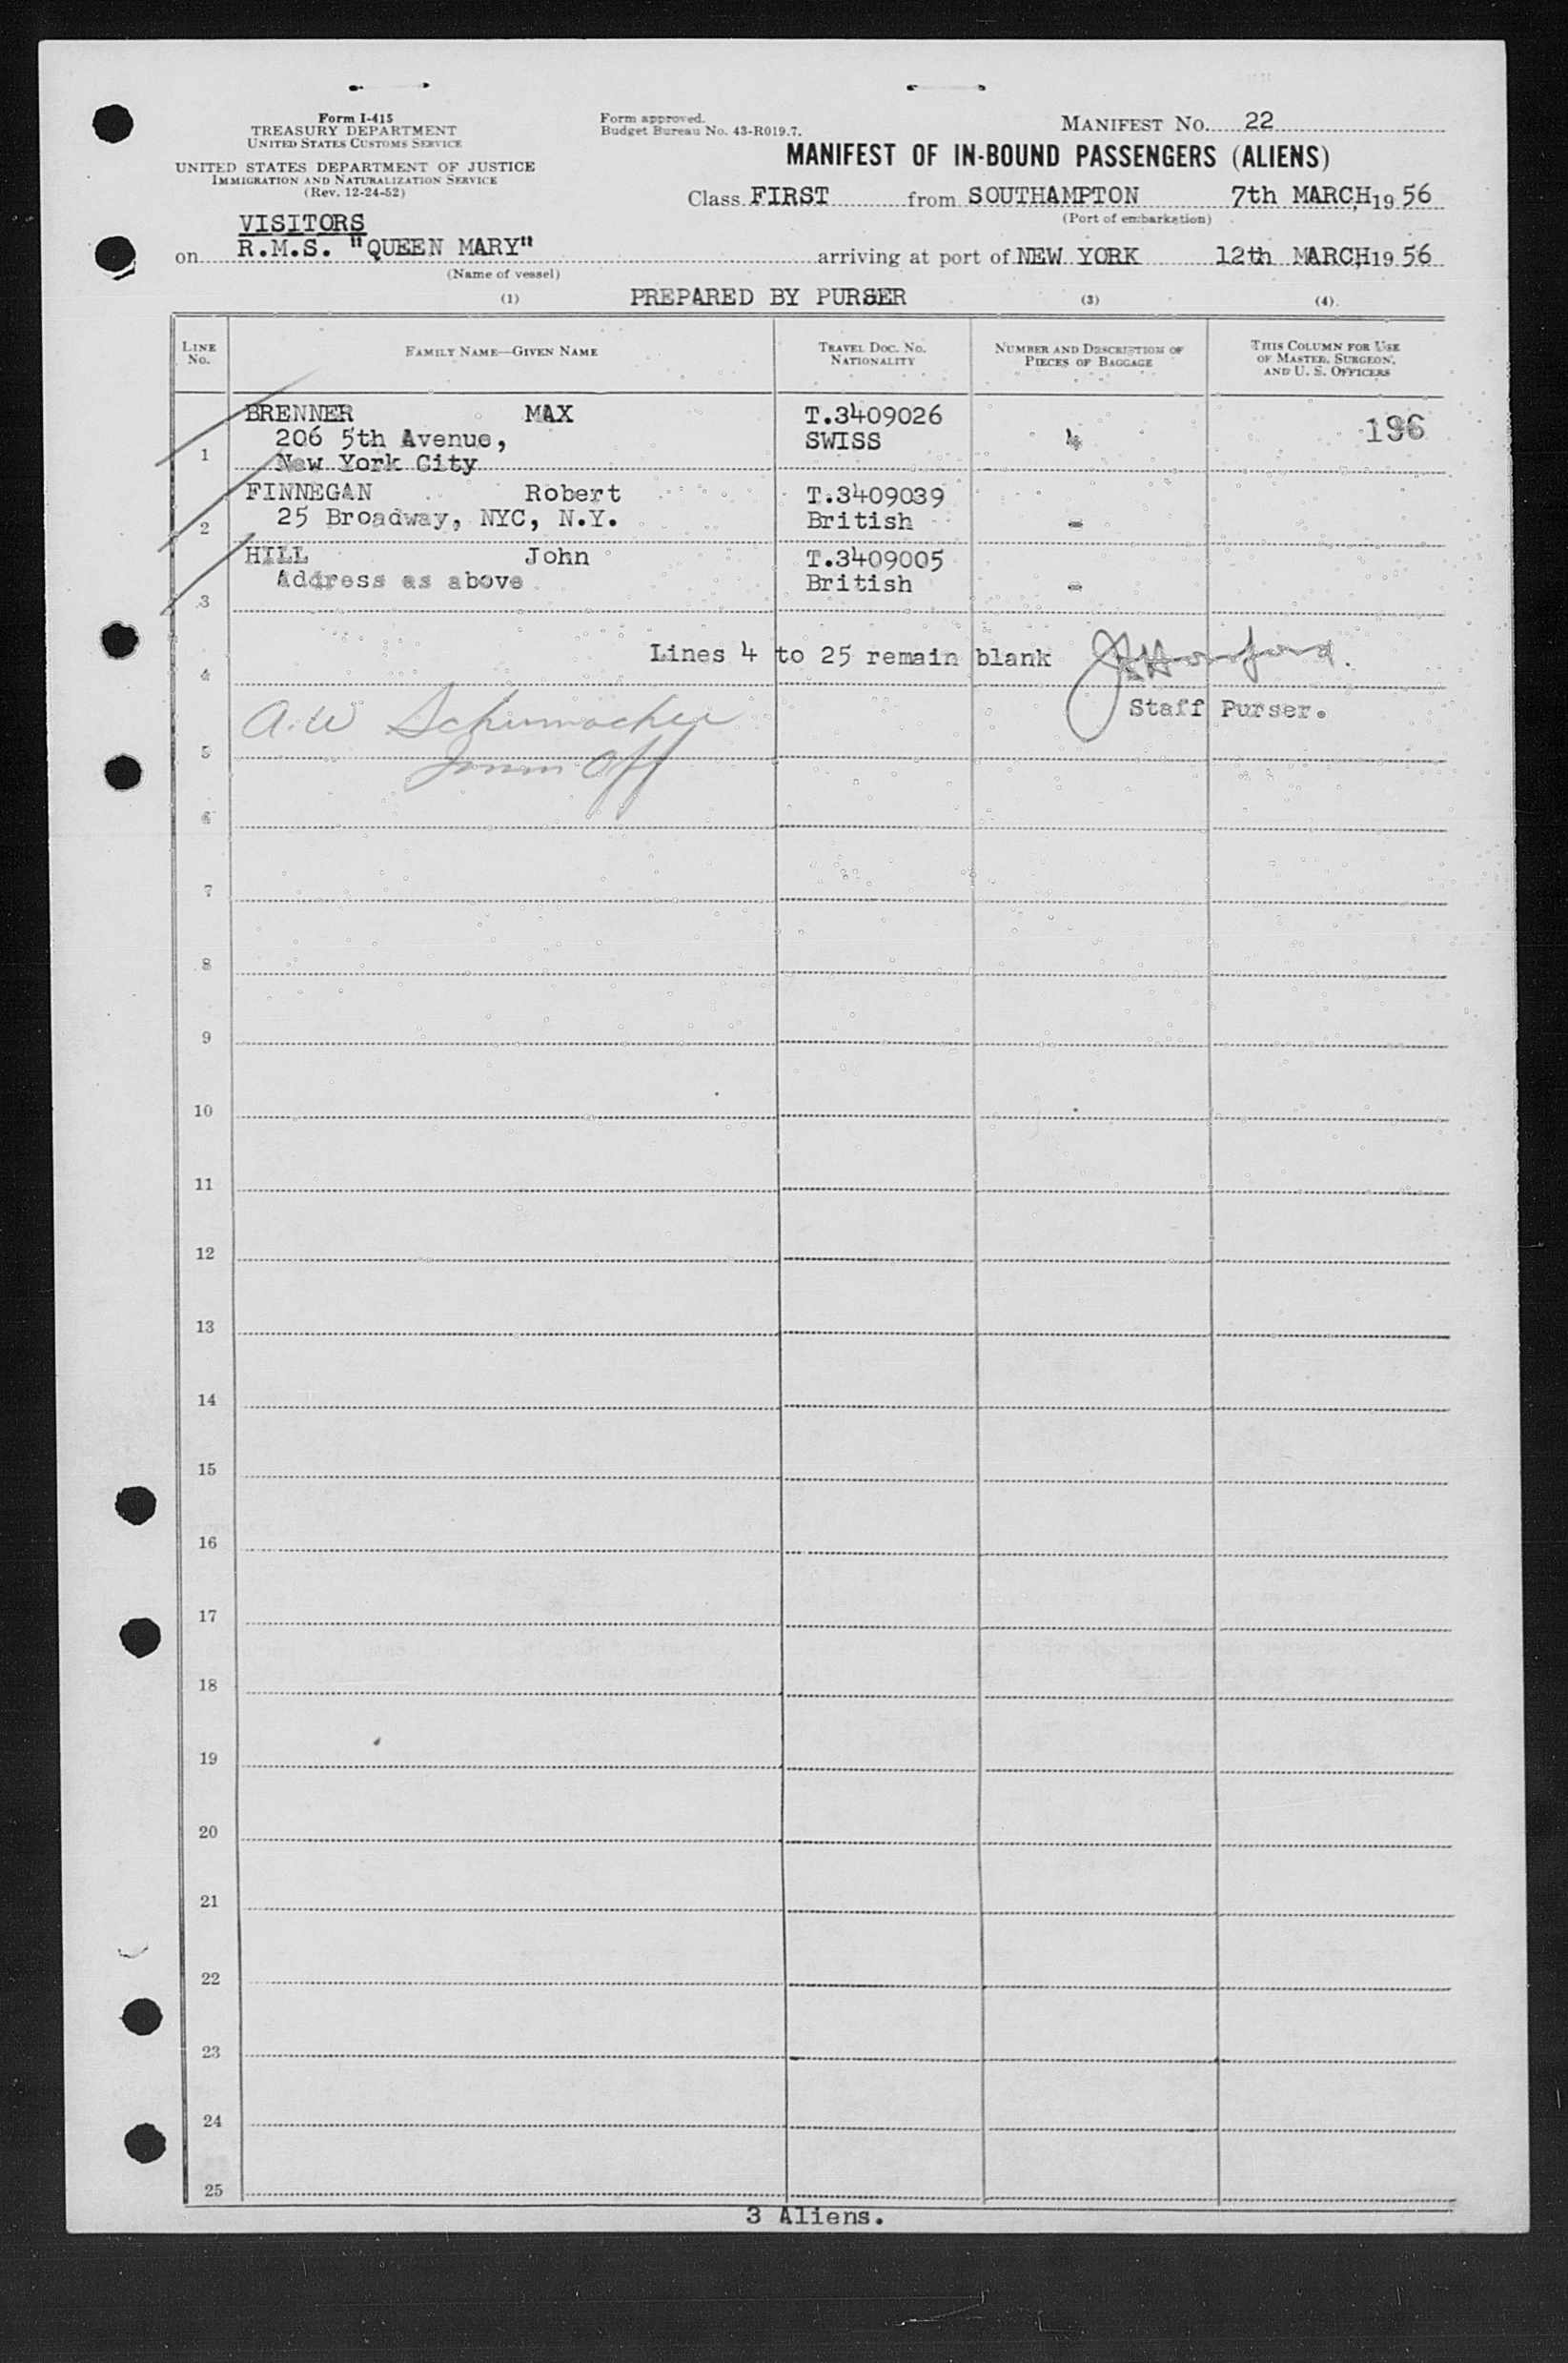 Form I-415
TREASURY DEPARTMENT
UNITED STATES CUSTOMS SERVICE
UNITED STATES DEPARTMENT OF JUSTICE
IMMIGRATION AND NATURALIZATION SERVICE
(Rev. 12-24-52)
Form approved.
Budget Bureau No. 43-R019.7.
MANIFEST NO. 22
MANIFEST OF IN-BOUND PASSENGERS (ALIENS)
Class FIRST from SOUTHAMPTON 7th MARCH, 19 56
(Port of embarkation)
VISITORS
on R.M.S. "QUEEN MARY" arriving at port of NEW YORK 12th MARCH, 19 56
(Name of vessel)
(1) PREPARED BY PURSER (3) (4)
LINE No. FAMILY NAME—GIVEN NAME TRAVEL DOC. NO. NATIONALITY NUMBER AND DESCRIPTION OF PIECES OF BAGGAGE THIS COLUMN FOR USE OF MASTER, SURGEON, AND U. S. OFFICERS
BRENNER MAX T.3409026 196
206 5th Avenue, SWISS 4
1 New York City
FINNEGAN Robert T.3409039
2 25 Broadway, NYC, N.Y. British -
HILL John T.3409005
Address as above British -
3
Lines 4 to 25 remain blank
4
Staff Purser.
A.W Schumacher
5
Immn Off
6
7
8
9
10
11
12
13
14
15
16
17
18
19
20
21
22
23
24
25
3 Aliens.